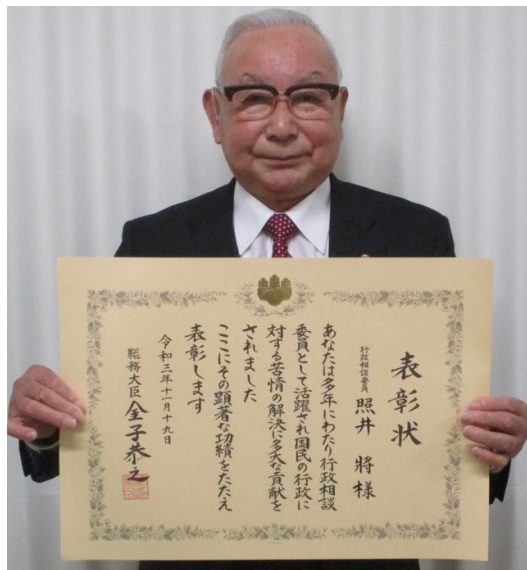 表彰状
行政相談委員 照井 將 様
あなたは多年にわたり行政相談
委員として活躍され国民の行政に
対する苦情の解決に多大な貢献を
されました
ここにその顕著な功績をたたえ
表彰します
令和三年十一月十九日
総務大臣 金子恭之